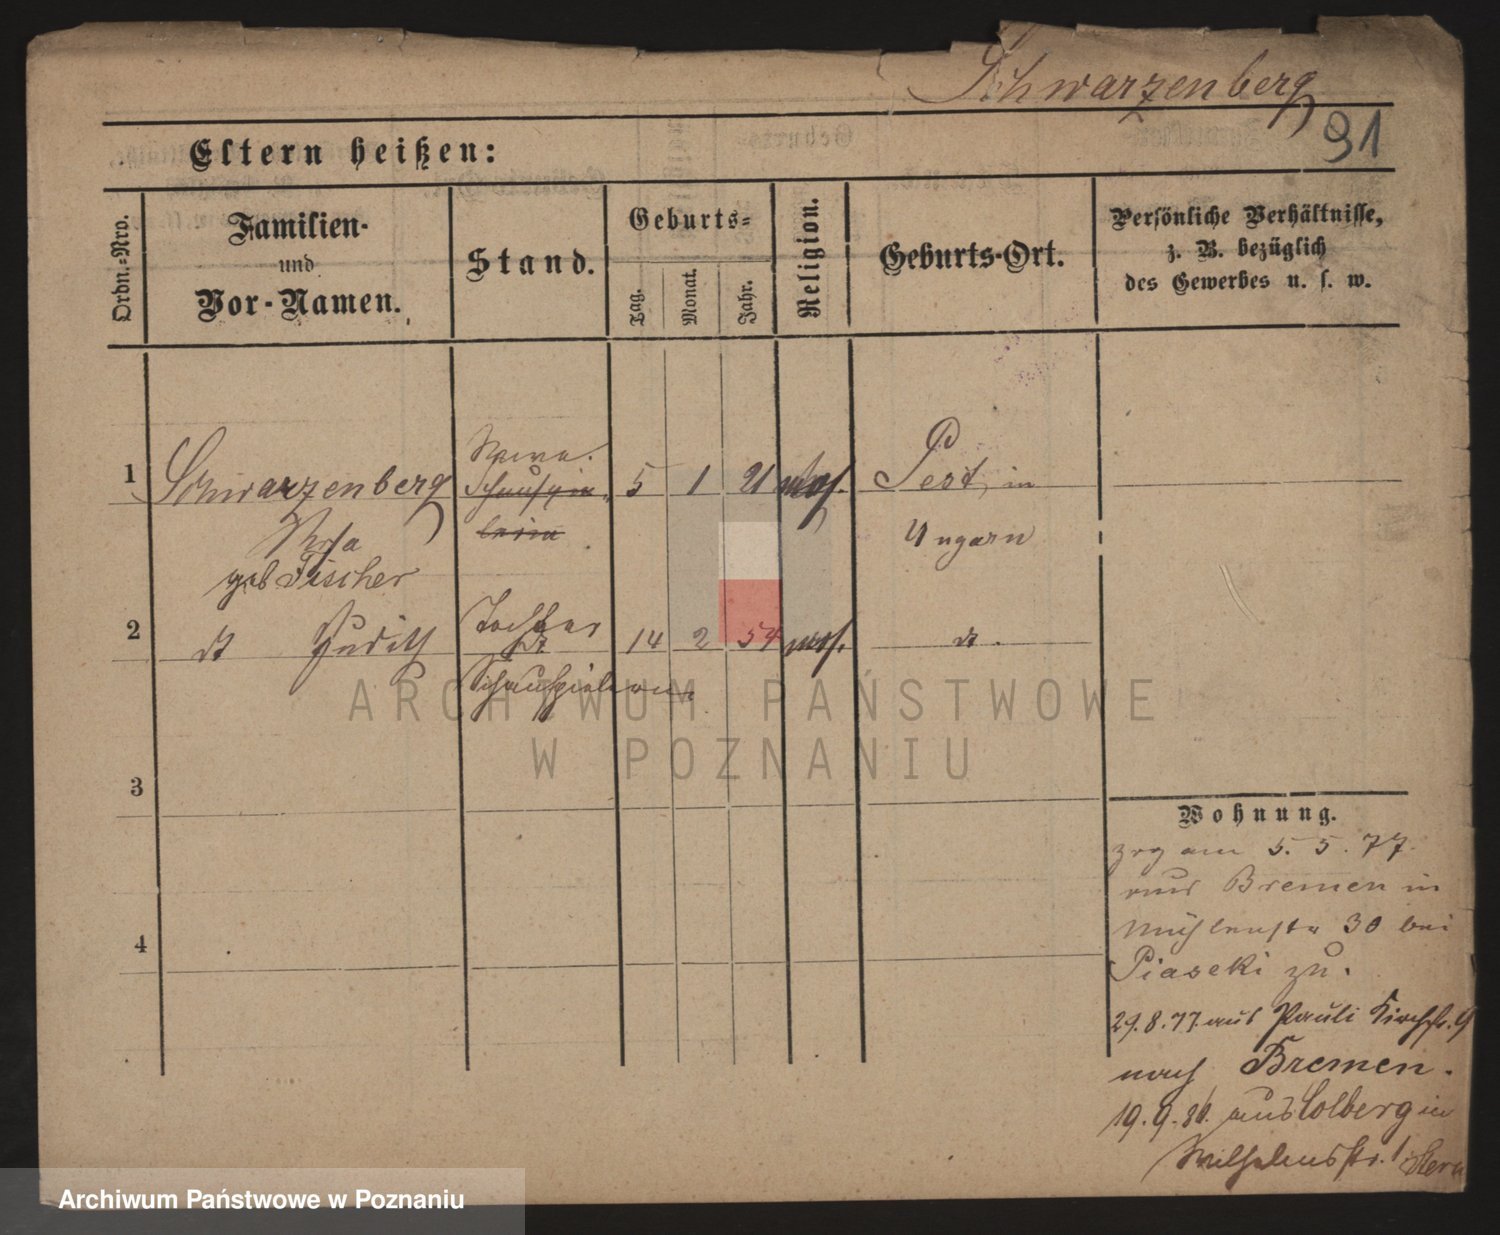 Schwarzenberg
91
Eltern heißen:
Ordn.-Nro.
Familien-
und
Vor-Namen.
Stand.
Geburts-
Tag.
Monat.
Jahr.
Religion.
Geburts-Ort.
Persönliche Verhältnisse,
z. B. bezüglich
des Gewerbes u. s. w.
1
Schwarzenberg
geb Fischer
5 1 21 mos.
Pest, in
Ungarn
2
dt Judith
Tochter
Schauspielerin
14 2 54 mos.
dt.
3
4
Wohnung.
zog am 5. 5. 77
aus Bremen in
Mühlenstr 30 bei
Piaseki zu.
29.8.77. aus Pauli Kirchstr. 9
nach Bremen.
19.9. aus Colberg in
Wilhelmsstr. 1 Stern
ARCHIWUM PAŃSTWOWE
W POZNANIU
Archiwum Państwowe w Poznaniu